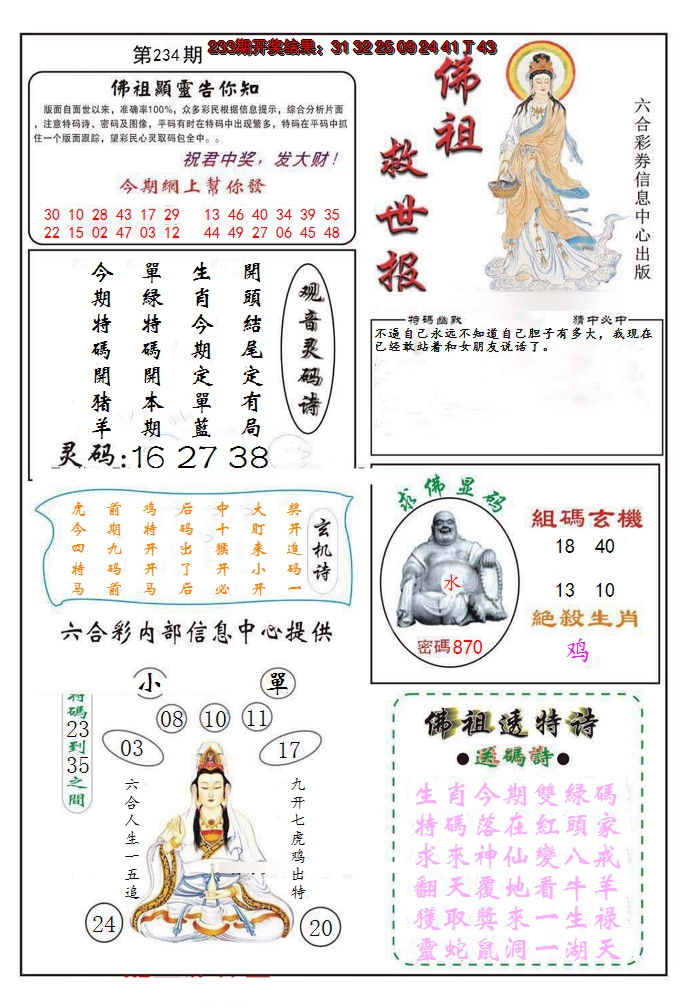 第234期
233期开奖结果：31 32 25 09 24 41 T 43
佛祖顯靈告你知
版面自面世以来，准确率100%，众多彩民根据信息提示，综合分析片面
，注意特码诗、密码及图像，平码有时在特码中出现繁多，特码在平码中抓
住一个版面跟踪，望彩民心灵取码包全中。。
祝君中奖，发大财！
今期網上幫你發
30 10 28 43 17 29 13 46 40 34 39 35
22 15 02 47 03 12 44 49 27 06 45 48
佛祖
救世报
六合彩券信息中心出版
观音灵码诗
開頭結尾定有局
生肖今期定單藍
單綠特碼開本期
今期特碼開猪羊
灵码:16 27 38
特码幽默
猜中必中
不逼自己永远不知道自己胆子有多大，我现在
已经敢站着和女朋友说话了。
玄机诗
奖开追码一
大盯来小开
中十猴开必
后码出了后
鸡特开开马
前期九码前
虎今四特马
六合彩内部信息中心提供
求佛显码
水
密碼870
組碼玄機
18 40
13 10
絶殺生肖
鸡
小
單
特碼23到35之間
08 10 11
03
17
六合人生一五追
九开七虎鸡出特
24
20
佛祖透特诗
●送碼詩●
生肖今期雙綠碼
特碼落在紅頭家
求來神仙變八戒
翻天覆地看牛羊
獲取獎來一生禄
靈蛇鼠洞一湖天